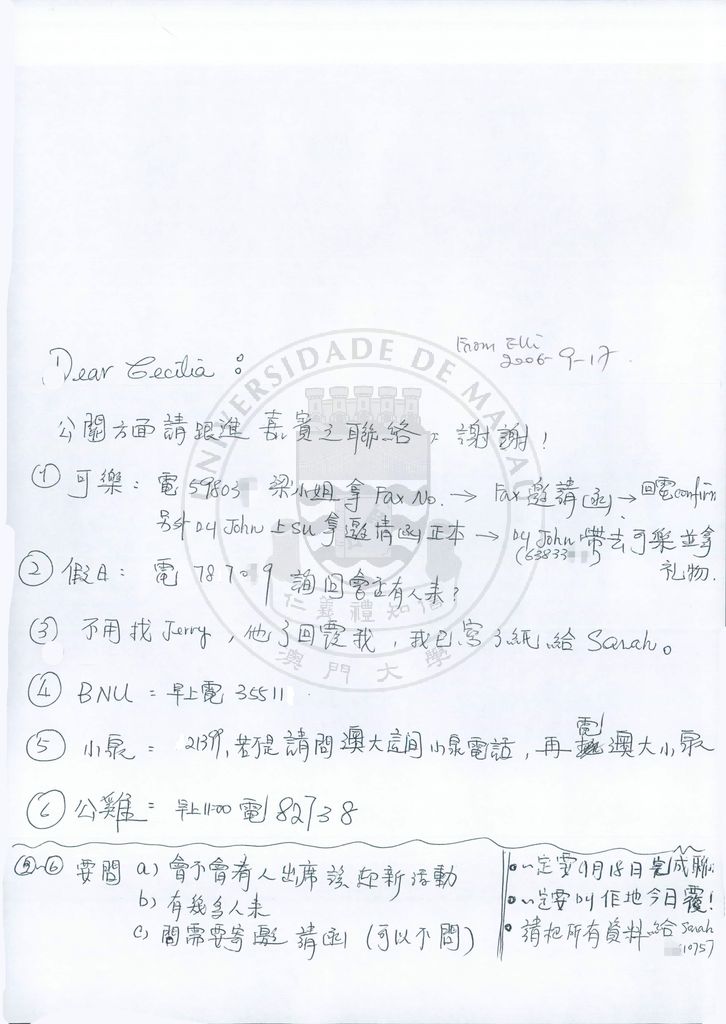 From Elli
2006-9-17.
Dear Cecilia:
公關方面請跟進嘉賓之聯絡。謝謝!
① 可樂: 電 59803 梁小姐拿 Fax No. → Fax 邀請函 → 回電confirm
另外叫 John 上 SU 拿邀請函正本 → 叫 John 帶去可樂並拿
(63833 ) 礼物.
② 假日: 電 787 9 詢回會否有人來?
③ 不用找 Jerry, 他了回覆我, 我已寫了紙給 Sarah。
④ BNU = 早上電 35511
⑤ 小泉 = 21399, 若不是請問澳大這間小泉電話, 再電澳大小泉
⑥ 公雞 = 早上11:00 電 82738
⑤~⑥ 要問 a) 會不會有人出席該迎新活動
b) 有幾多人來
c) 問需要寄邀請函 (可以不問)
• 一定要9月18日完成聯
• 一定要叫佢地今日覆!
• 請把所有資料給 Sarah
1075)
UNIVERSIDADE DE MACAU
仁義禮知信
澳門大學